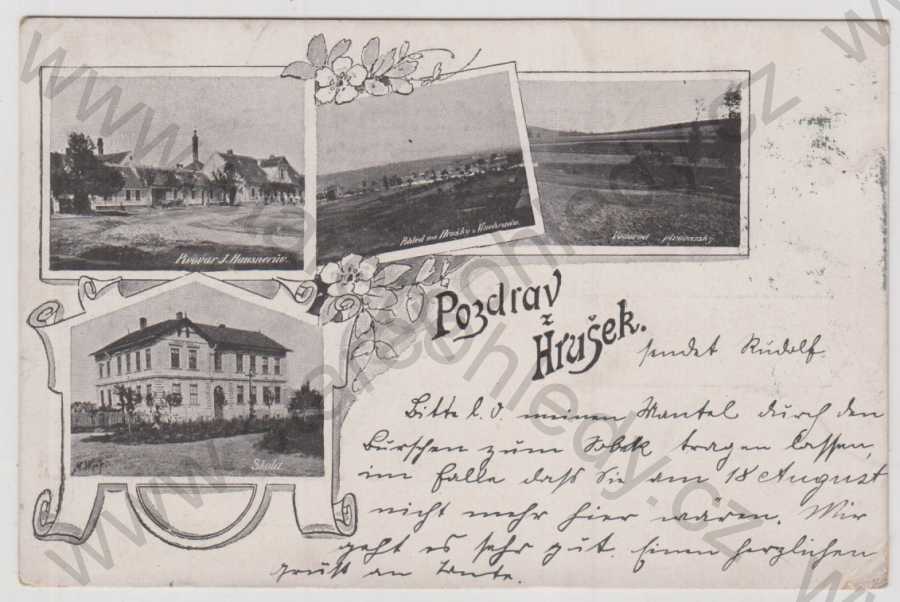 Pivovar J. Hausnerův.
Pohled na Hrušky z Vinohradu.
pivovarský
Škola
Pozdrav
z
Hrušek.
sendet Rudolf.
Bitte l. O. meinen Mantel durch den
Burschen zum tragen lassen,
im Falle daß Sie am 18 August
nicht mehr hier wären. Mir
geht es sehr gut. Einen herzlichen
Gruß an Tante.
www.stare-pohledy.cz